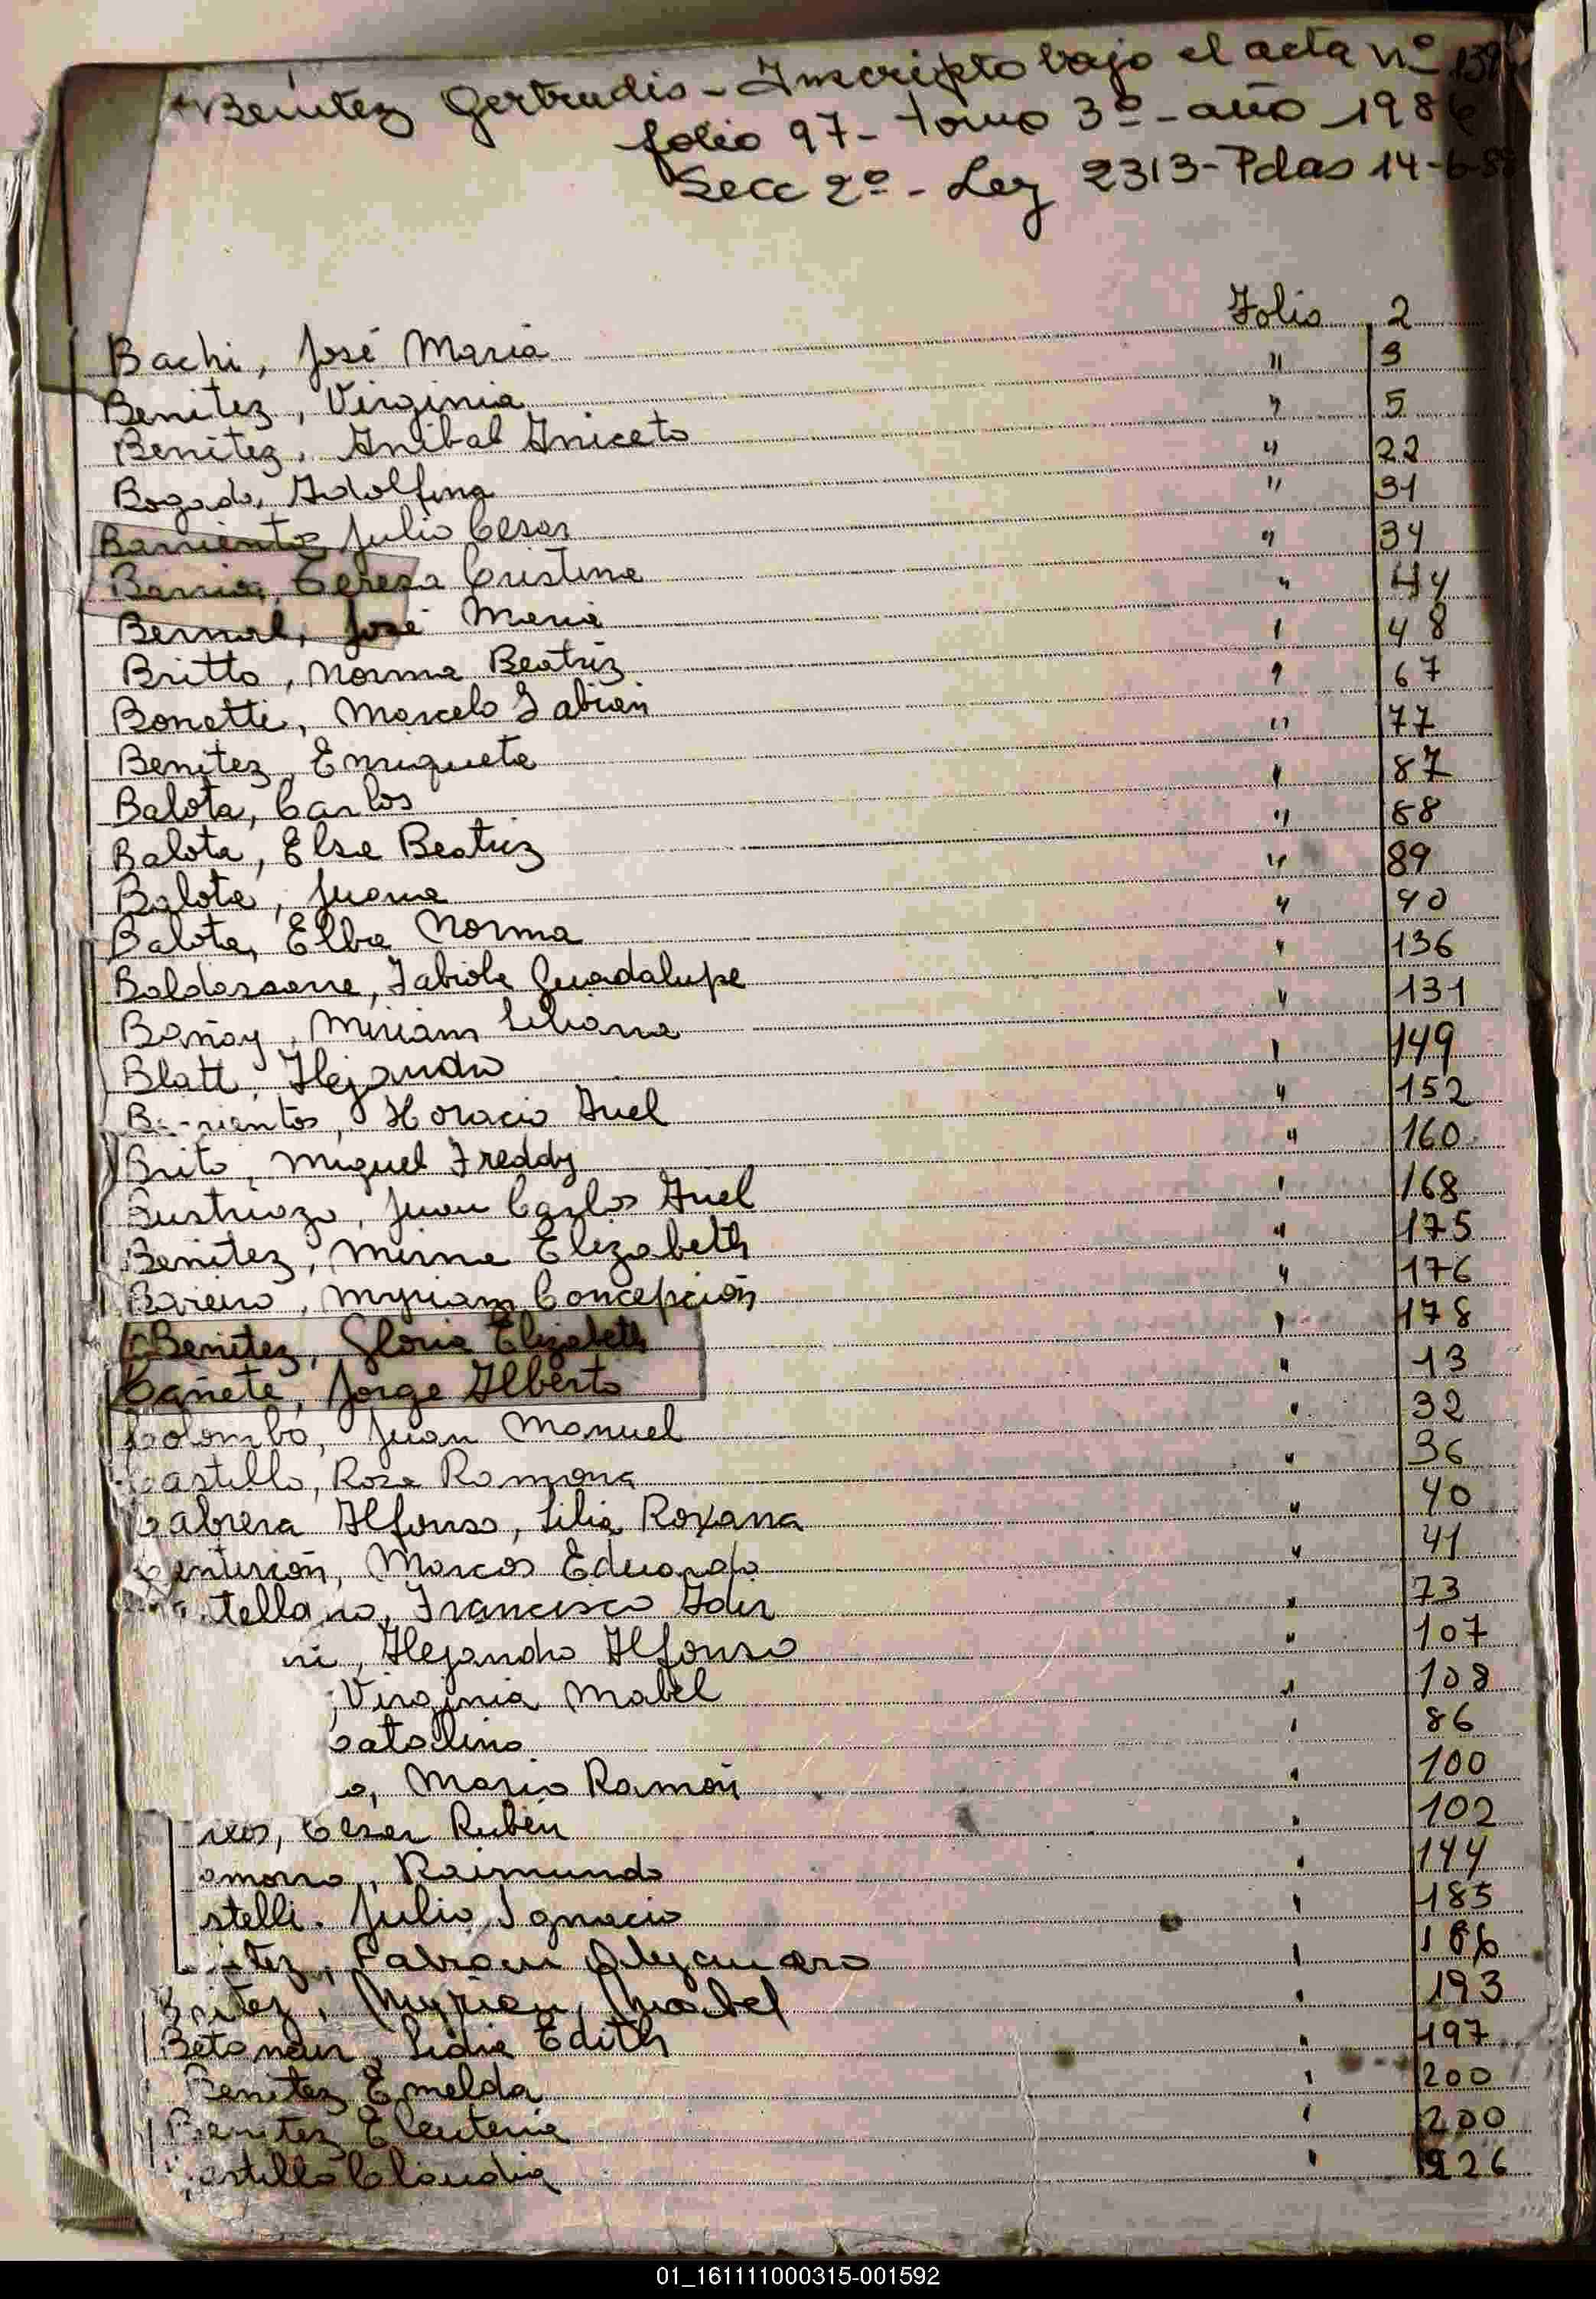 Benitez Gertrudis - Inscripto bajo el acta nº 139
folio 97 - tomo 3º - año 1986
Secc 2º - Ley 2313 - Pdas 14-6-88
Bachi, José Maria Folio 2
Benitez, Virginia " 3
Benitez, Anibal Aniceto " 5
Bogado, Adolfina " 22
Barrientos Julio Cesar " 31
Teresa Cristina " 34
Bernal, José Maria " 44
Britto, Norma Beatriz " 48
Bonetti, Marcelo Fabian " 67
Benitez, Enriqueta " 77
Balota, Carlos " 87
Balota, Elsa Beatriz " 88
Balota, Juana " 89
Balota, Elba Norma " 90
Baldassarre, Fabiola Guadalupe " 136
Bañay, Miriam Liliana " 131
Blatt, Alejandro " 149
Barrientos, Horacio Ariel " 152
Brito, Miguel Freddy " 160
Bustriazo, Juan Carlos Ariel " 168
Benitez, Mirna Elizabeth " 175
Bareiro, Myriam Concepción " 176
Benitez, Gloria Elizabeth " 178
Cañete, Jorge Alberto " 13
Colombo, Juan Manuel " 32
Castillo, Rosa Ramona " 36
Cabrera Alfonso, Lilia Roxana " 40
Centurión, Marcos Eduardo " 41
tellano, Francisco " 73
ni, Alejandro Alfonso " 107
Virginia Mabel " 108
Catalino " 86
o, Mario Ramón " 100
Cesar Rubén " 102
amorro, Raimundo " 144
stelli. Julio Ignacio " 185
itez, Fabian Alejandro " 186
Britez, Myrian Mabel " 193
Betancur, Lidia Edith " 197
Benitez Emelda " 200
Benitez Eleuteria " 200
astillo Claudia " 226
01_161111000315-001592